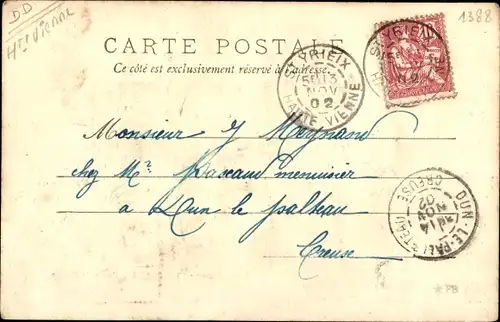 DD
Hte Vienne
1388
CARTE POSTALE
Ce côté est exclusivement réservé à l'adresse.
ST YRIEIX
13
NOV
02
HAUTE VIENNE
Monsieur J Meynand
chez Mr. Pascaud menuisier
a Dun le palleau
Creuse
DUN-LE-PALLETEAU
CREUSE
14
NOV
02
★FB